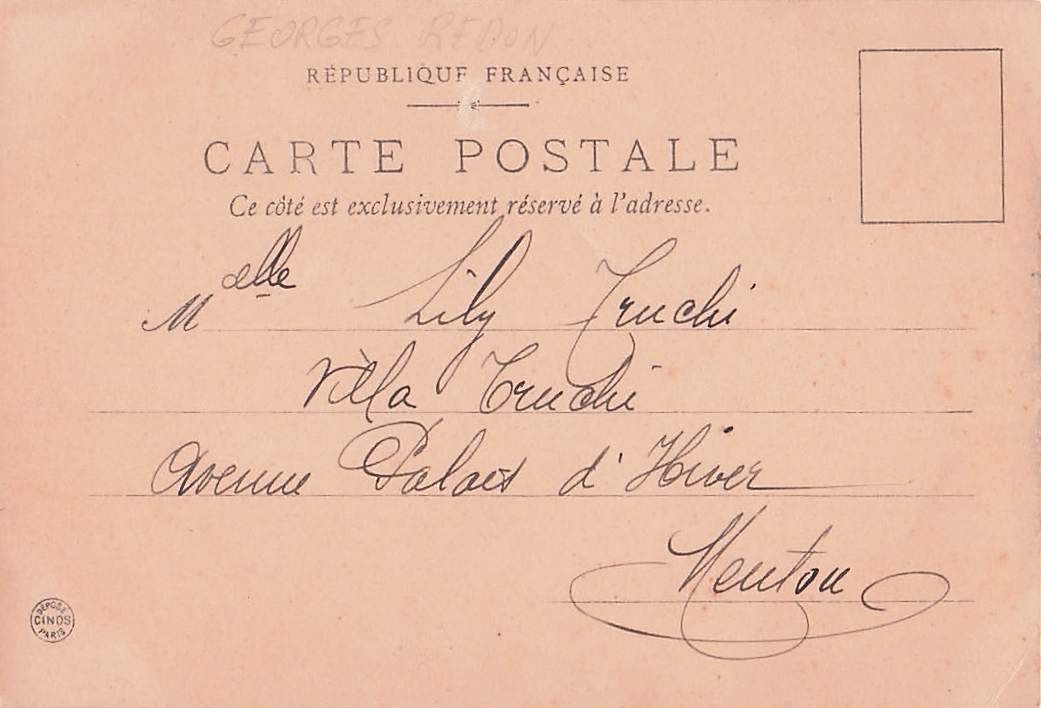 GEORGES REDON
RÉPUBLIQUE FRANÇAISE
CARTE POSTALE
Ce côté est exclusivement réservé à l'adresse.
Melle Lily Truchi
Villa Truchi
Avenue Palais d'Hiver
Menton
DÉPOSÉ
CINOS
PARIS